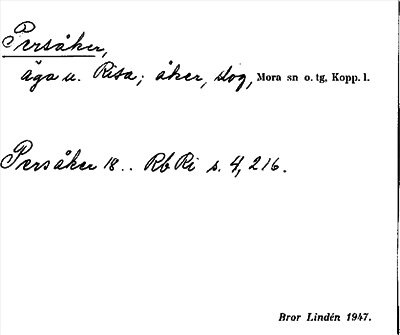 Persåker,
äga u. Risa; åker, slog, Mora sn o. tg, Kopp. l.
Persåker 18 . . Rb Ri s. 4, 216.
Bror Lindén 1947.